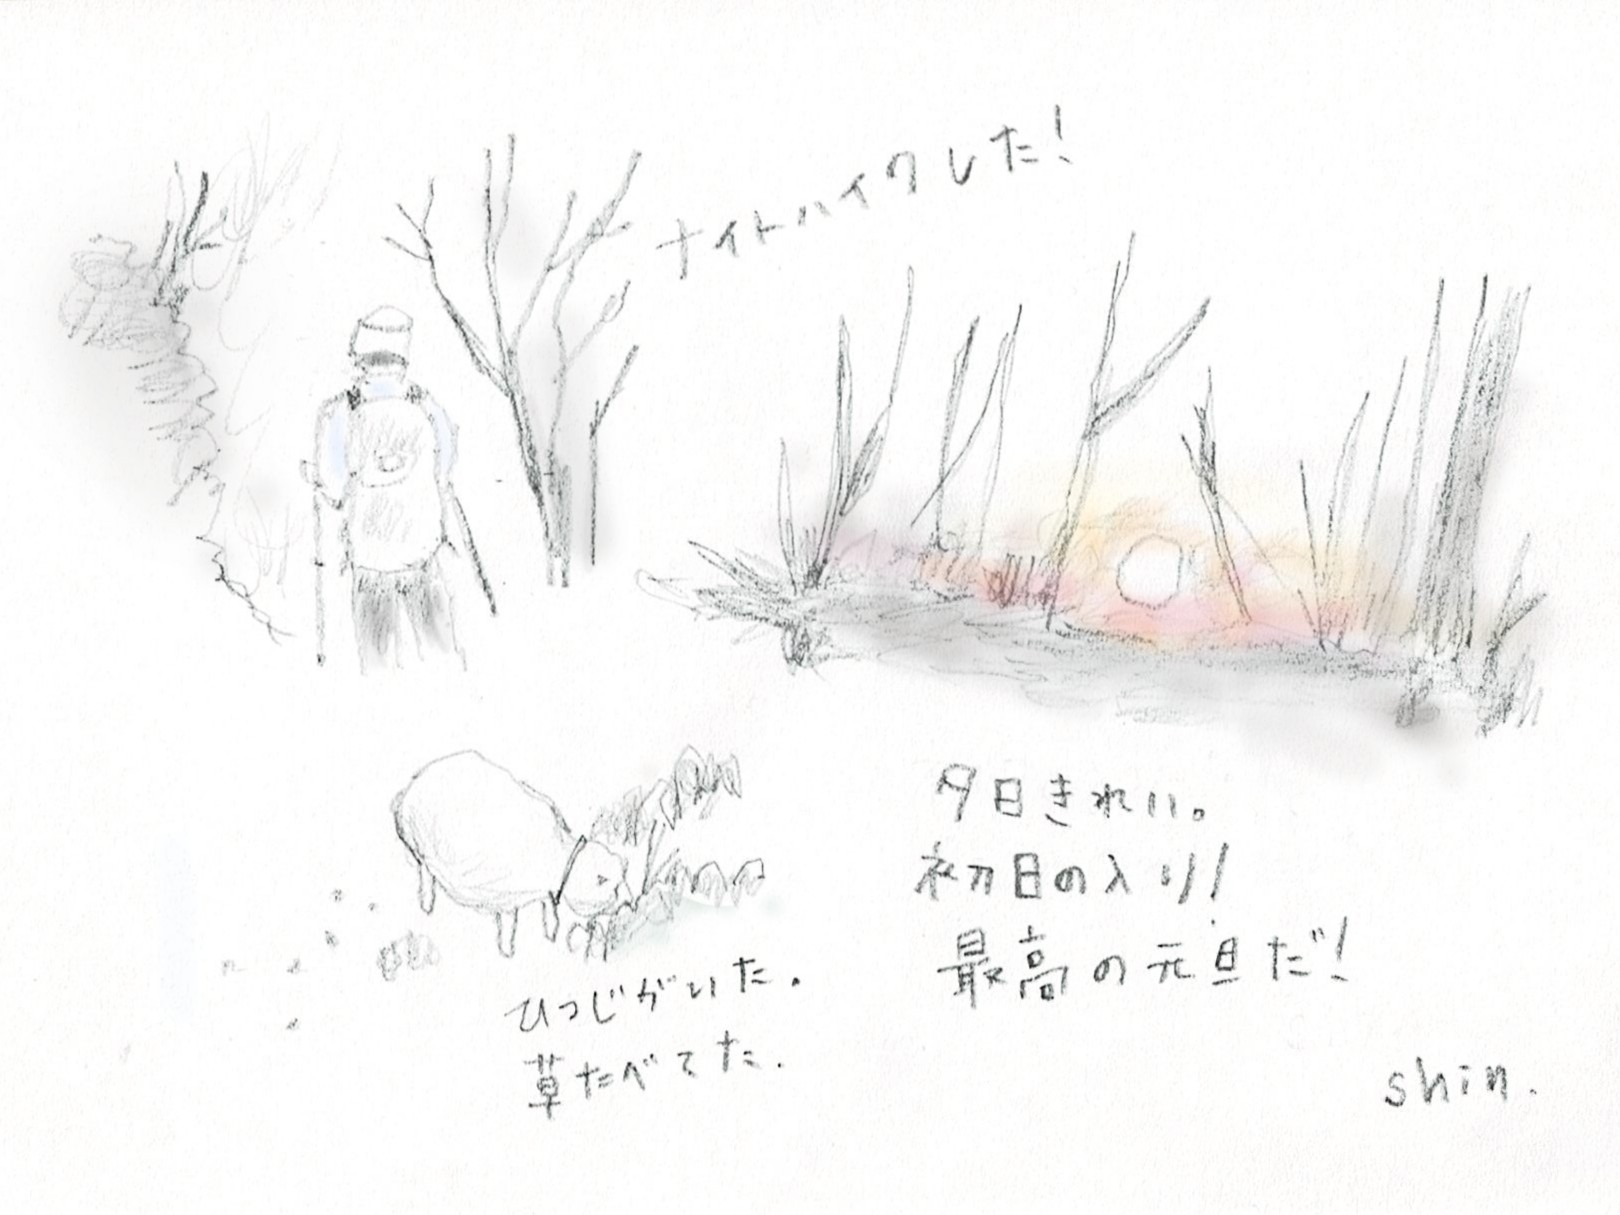 ナイトハイクした!
夕日きれい。
初日の入り!
最高の元旦だ!
ひつじがいた.
草たべてた.
shin.